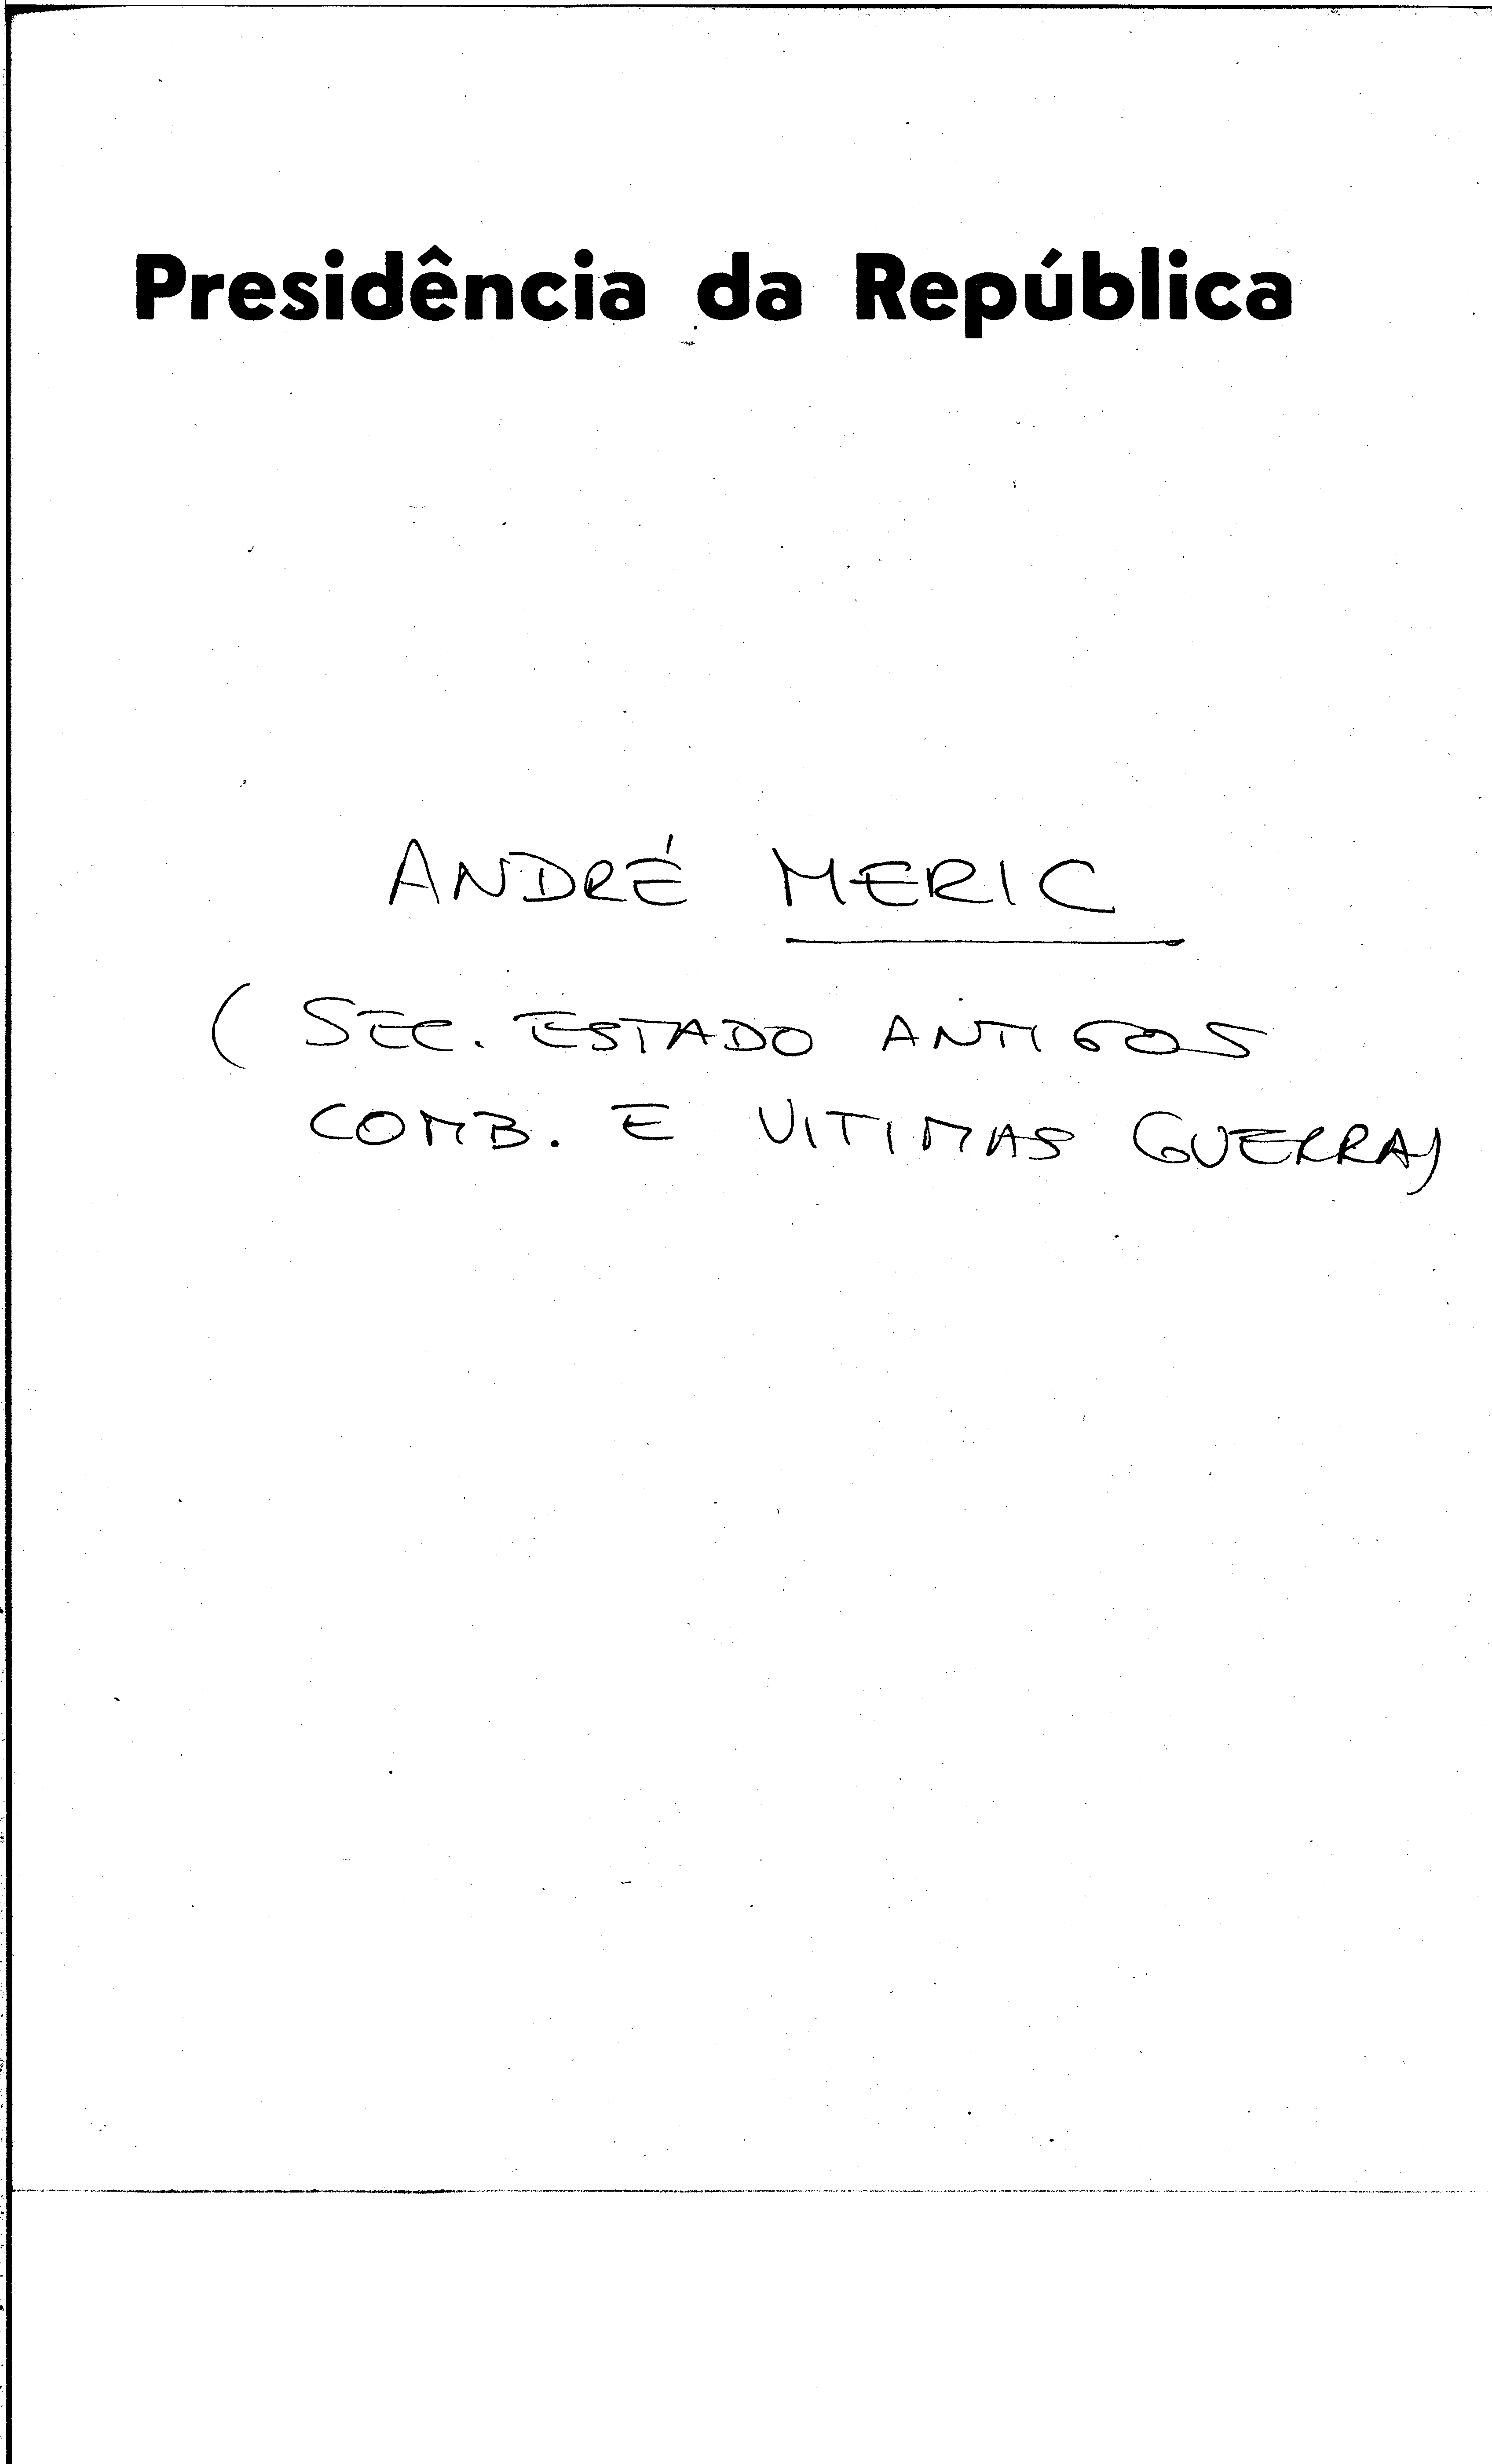 Presidência da República
ANDRÉ MERIC
( SEC. ESTADO ANTIGOS
COMB. E VITIMAS GUERRA)